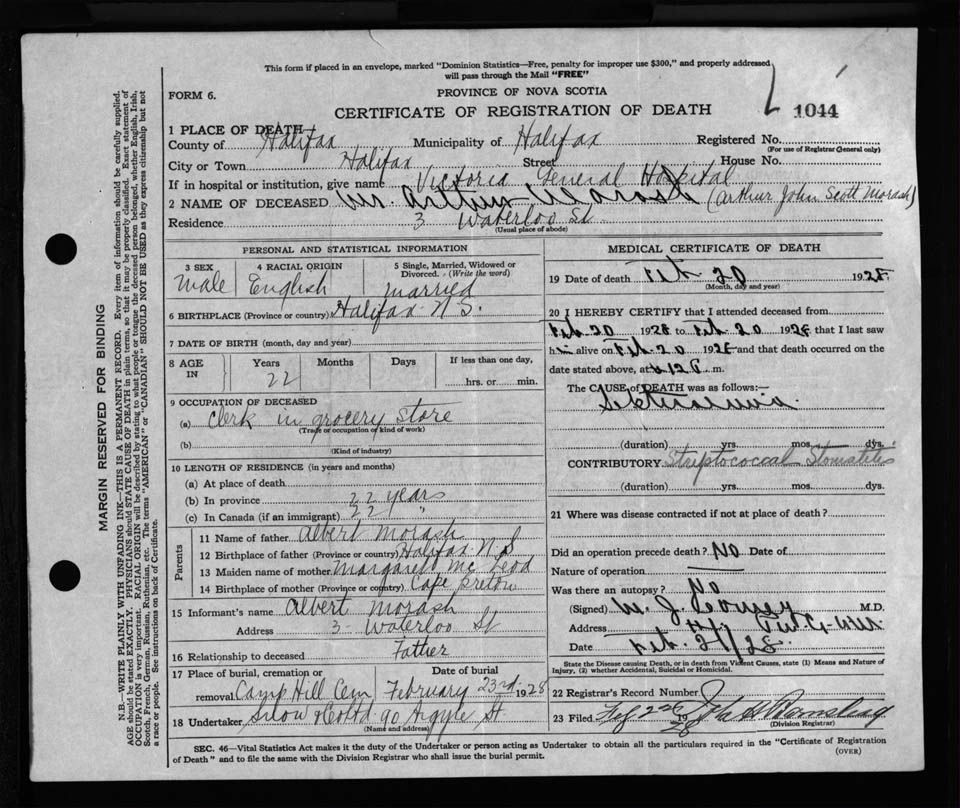 This form if placed in an envelope, marked "Dominion Statistics—Free, penalty for improper use $300," and properly addressed
will pass through the Mail "FREE"
FORM 6.
PROVINCE OF NOVA SCOTIA
CERTIFICATE OF REGISTRATION OF DEATH
1044
1 PLACE OF DEATH—
County of Halifax Municipality of Halifax Registered No.
(For use of Registrar General only)
City or Town Halifax Street House No.
If in hospital or institution, give name Victoria General Hospital
2 NAME OF DECEASED Mr Arthur Morash (Arthur John Scott Morash)
Residence 3 Waterloo St
(Usual place of abode)
PERSONAL AND STATISTICAL INFORMATION
3 SEX 4 RACIAL ORIGIN 5 Single, Married, Widowed or
Divorced. (Write the word)
Male English married
6 BIRTHPLACE (Province or country) Halifax N.S.
7 DATE OF BIRTH (month, day and year)
8 AGE IN Years Months Days If less than one day,
22 hrs. or min.
9 OCCUPATION OF DECEASED
(a) Clerk in grocery store
(Trade or occupation or kind of work)
(b)
(Kind of industry)
10 LENGTH OF RESIDENCE (in years and months)
(a) At place of death
(b) In province 22 years
(c) In Canada (if an immigrant) 22 "
Parents
11 Name of father Albert Morash
12 Birthplace of father (Province or country) Halifax N.S
13 Maiden name of mother Margaret Mc Leod
14 Birthplace of mother (Province or country) Cape Breton
15 Informant's name Albert Morash
Address 3 - Waterloo St
16 Relationship to deceased Father
17 Place of burial, cremation or Date of burial
removal Camp Hill Cem February 23rd 1928
18 Undertaker Snow & Co Ltd 90 Argyle St
(Name and address)
MEDICAL CERTIFICATE OF DEATH
19 Date of death Feb. 20 1928
(Month, day and year)
20 I HEREBY CERTIFY that I attended deceased from
Feb 20 1928 to Feb. 20 1928 that I last saw
him alive on Feb. 20 1928 and that death occurred on the
date stated above, at m.
The CAUSE of DEATH was as follows:—
Septicaemia
(duration) yrs. mos. dys.
CONTRIBUTORY Streptococcal Stomatitis
(duration) yrs. mos. dys.
21 Where was disease contracted if not at place of death?
Did an operation precede death? No Date of
Nature of operation
Was there an autopsy? No
(Signed) M. J. M.D.
Address
Date Feb. 21/28
State the Disease causing Death, or in death from Violent Causes, state (1) Means and Nature of
Injury, (2) whether Accidental, Suicidal or Homicidal.
22 Registrar's Record Number
23 Filed 19 28
(Division Registrar)
SEC. 46—Vital Statistics Act makes it the duty of the Undertaker or person acting as Undertaker to obtain all the particulars required in the "Certificate of Registration
of Death" and to file the same with the Division Registrar who shall issue the burial permit.
(OVER)
MARGIN RESERVED FOR BINDING
N.B.—WRITE PLAINLY WITH UNFADING INK—THIS IS A PERMANENT RECORD. Every item of information should be carefully supplied.
AGE should be stated EXACTLY. PHYSICIANS should STATE CAUSE OF DEATH in plain terms, so that it may be properly classified. Exact statement of
OCCUPATION is very important. RACIAL ORIGIN will be described by stating to what people or tongue the deceased person belonged, whether English, Irish,
Scotch, French, German, Russian, Ruthenian, etc. The terms "AMERICAN" or "CANADIAN" SHOULD NOT BE USED as they express citizenship but not
a race or people. See instructions on back of Certificate.